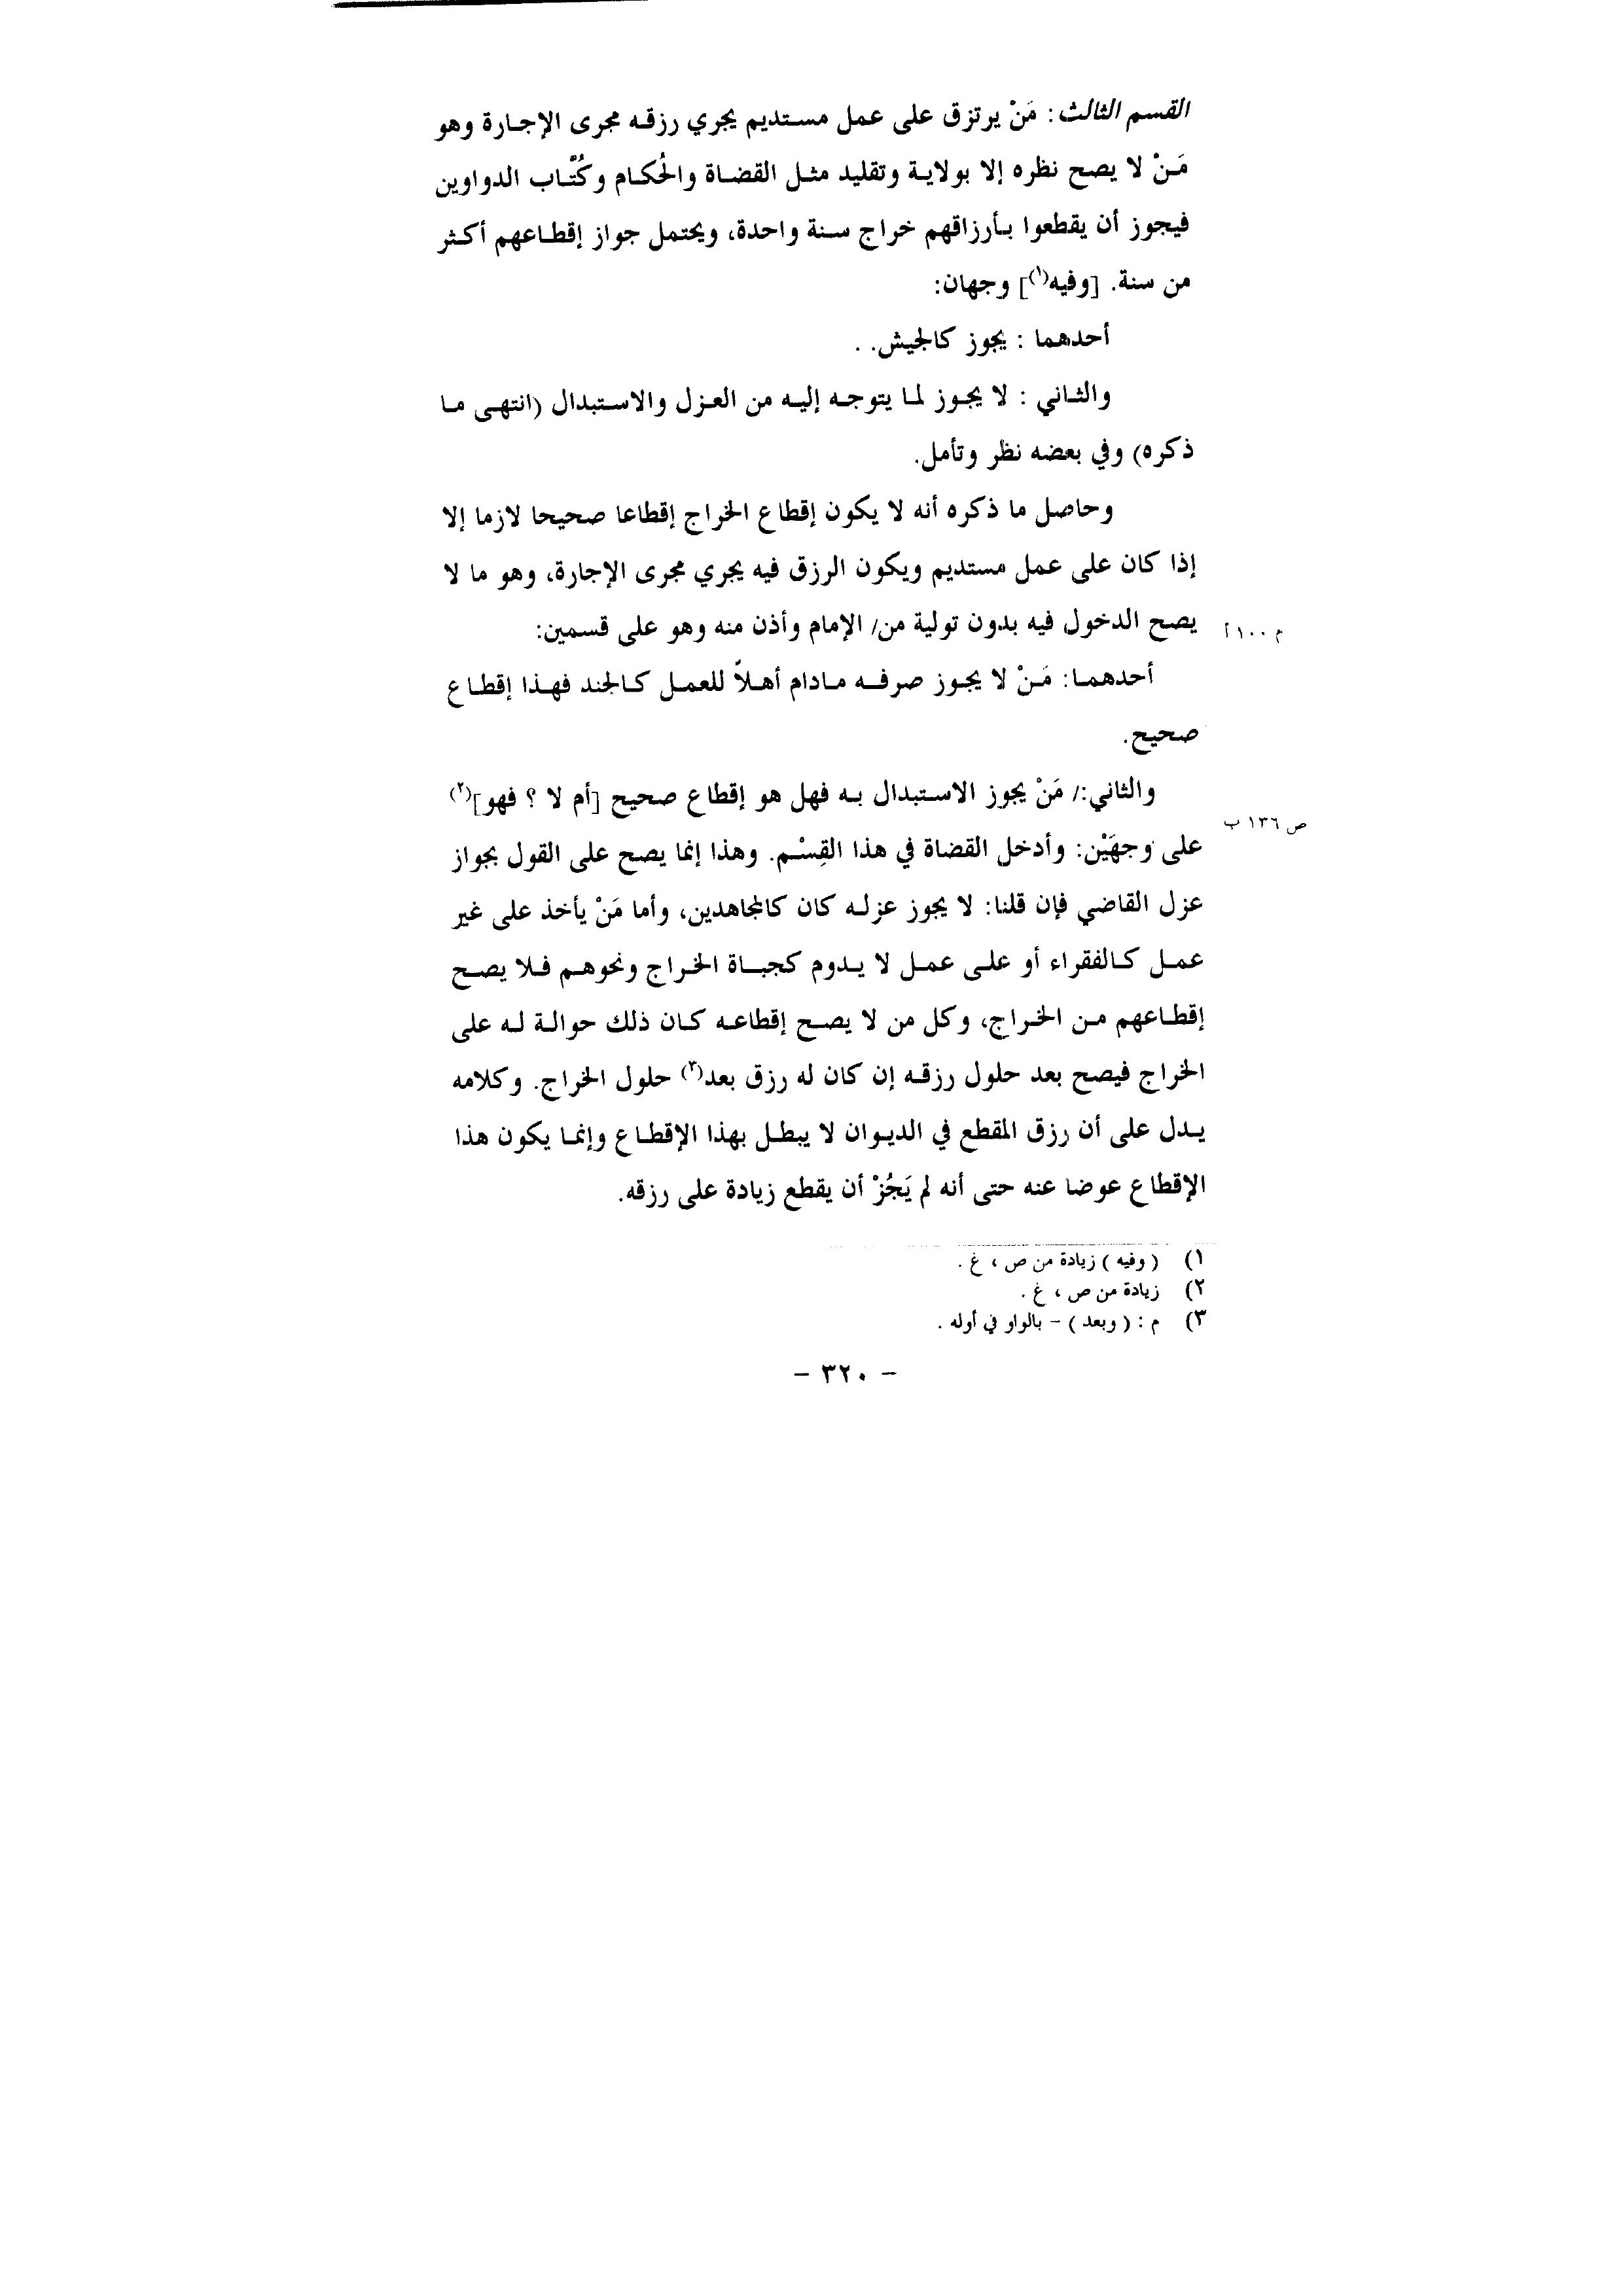 القسم الثالث: مَنْ يرتزق على عمل مستديم يجري رزقه مجرى الإجارة وهو
مَنْ لا يصح نظره إلا بولاية وتقليد مثل القضاة والحُكام وكُتَّاب الدواوين
فيجوز أن يقطعوا بأرزاقهم خراج سنة واحدة، ويحتمل جواز إقطاعهم أكثر
من سنة. [وفيه(١)] وجهان:
أحدهما : يجوز كالجيش. .
والثاني : لا يجوز لما يتوجه إليه من العزل والاستبدال (انتهى ما
ذكره) وفي بعضه نظر وتأمل.
وحاصل ما ذكره أنه لا يكون إقطاع الخراج إقطاعا صحيحا لازما إلا
إذا كان على عمل مستديم ويكون الرزق فيه يجري مجرى الإجارة، وهو ما لا
يصح الدخول فيه بدون تولية من/ الإمام وأذن منه وهو على قسمين:
م ١٠٠ أ
أحدهما: مَنْ لا يجوز صرفه مادام أهلاً للعمل كالجند فهذا إقطاع
صحيح.
والثاني:/ مَنْ يجوز الاستبدال به فهل هو إقطاع صحيح [أم لا ؟ فهو](٢)
ص ١٣٦ ب
على وجهَيْن: وأدخل القضاة في هذا القِسْم. وهذا إنما يصح على القول بجواز
عزل القاضي فإن قلنا: لا يجوز عزله كان كالمجاهدين، وأما مَنْ يأخذ على غير
عمل كالفقراء أو على عمل لا يدوم كجباة الخراج ونحوهم فلا يصح
إقطاعهم من الخراج، وكل من لا يصح إقطاعه كان ذلك حوالة له على
الخراج فيصح بعد حلول رزقه إن كان له رزق بعد(٣) حلول الخراج. وكلامه
يدل على أن رزق المقطع في الديوان لا يبطل بهذا الإقطاع وإنما يكون هذا
الإقطاع عوضا عنه حتى أنه لم يَجُزْ أن يقطع زيادة على رزقه.
١) ( وفيه ) زيادة من ص ، غ .
٢) زيادة من ص ، غ .
٣) م : ( وبعد ) - بالواو في أوله .
- ٣٢٠ -